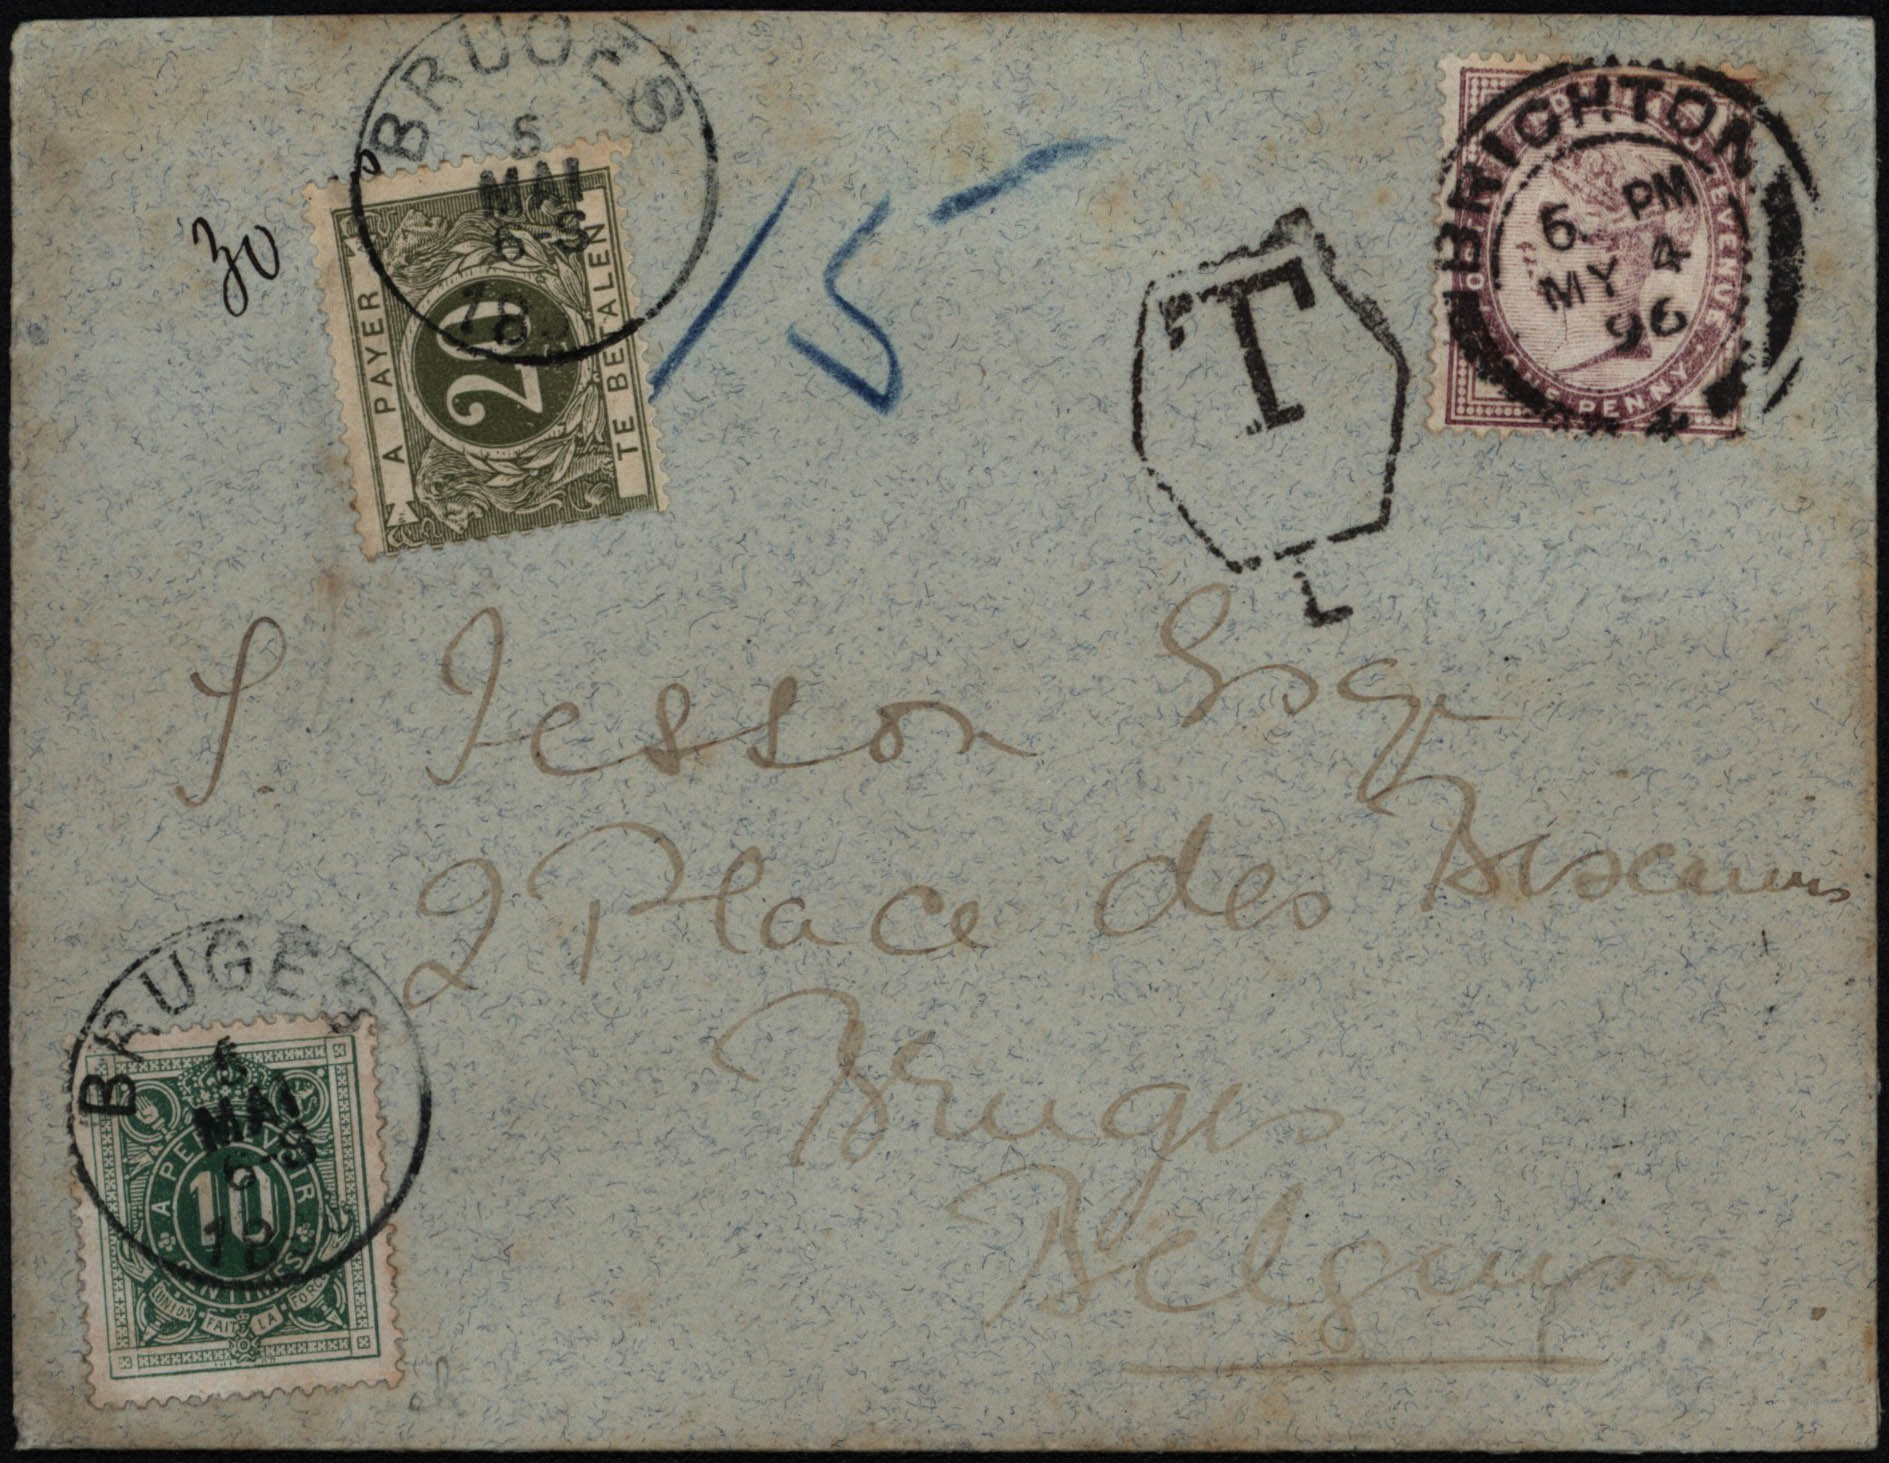 BRUGES
5
MAI
6-S
A PAYER
20
TE BETALEN
30
15
T
L
BRIGHTON
6 PM
MY 4
96
REVENUE
ONE PENNY
S. Jesson Esq
2 Place des
Bruges
Belgium
BRUGES
5
MAI
6-S
A PERCEVOIR
10
CENTIMES
L'UNION FAIT LA FORCE